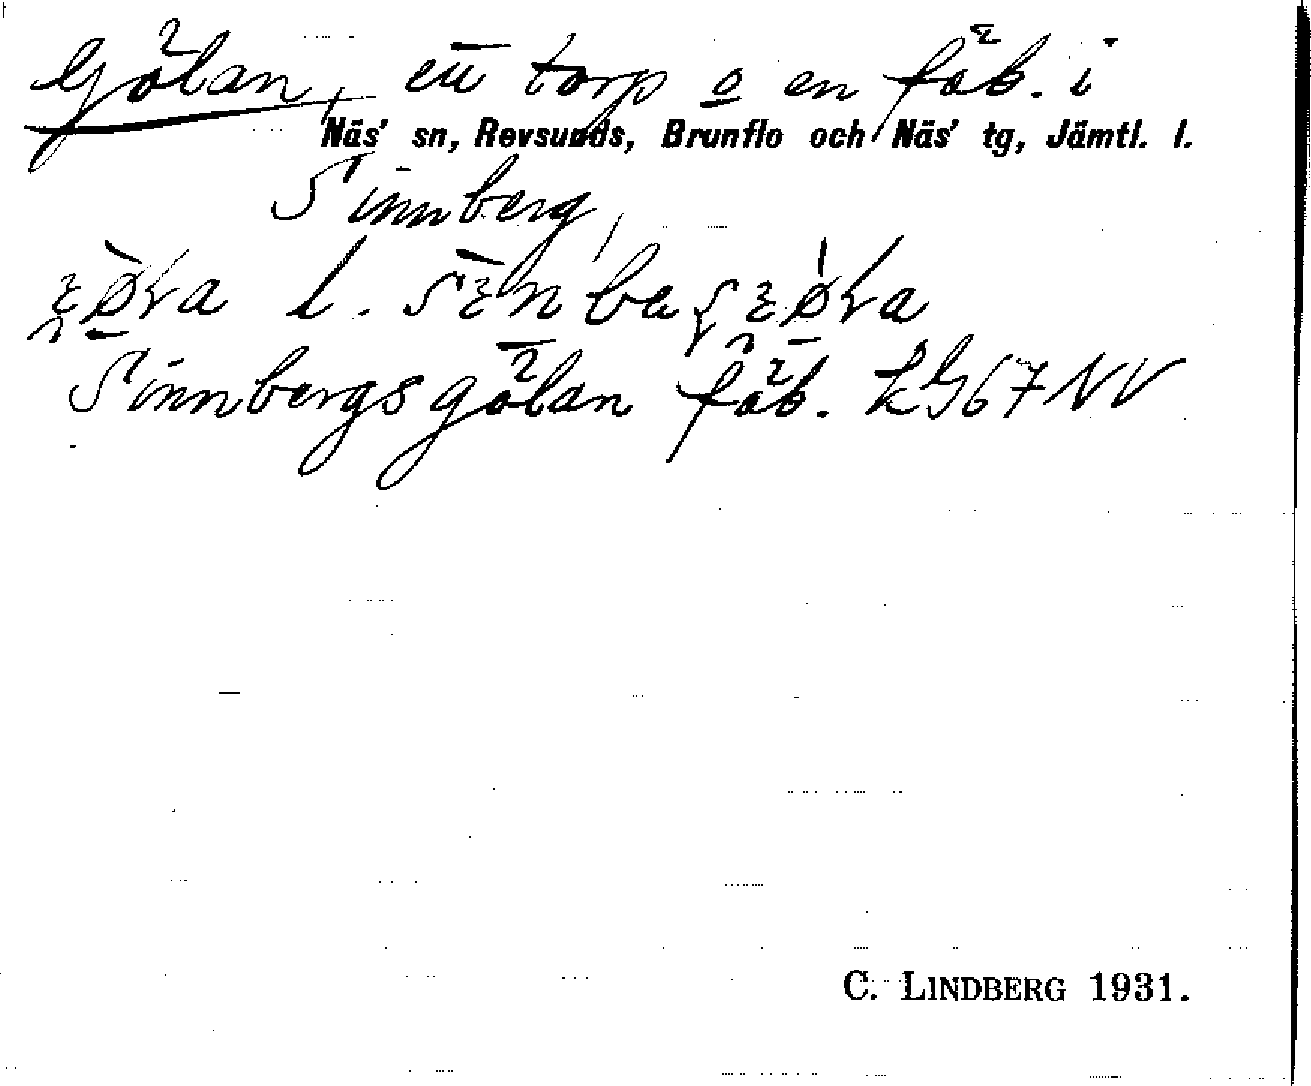 Gölan, ett torp o en fäb. i
Näs' sn, Revsunds, Brunflo och Näs' tg, Jämtl. l.
Sinnberg
l.
Sinnbergsgölan fäb. LG67NV
C. LINDBERG 1931.